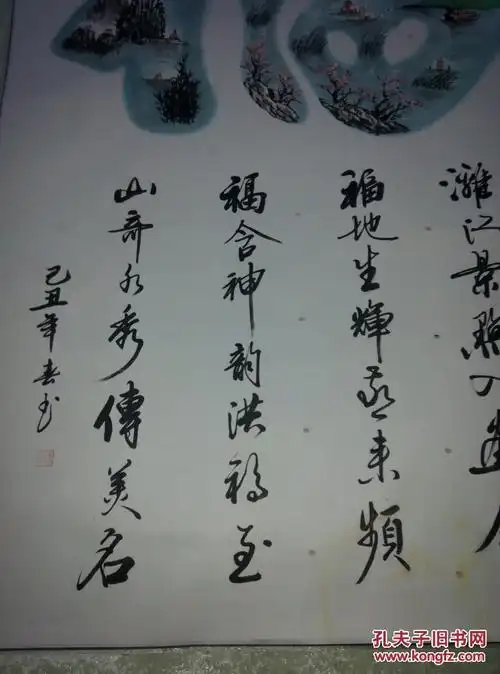 灕江景點入畫
福地生輝来頻
福含神韻洪福至
山奇水秀傳美名
己丑年春书
孔夫子旧书网
www.kongfz.com